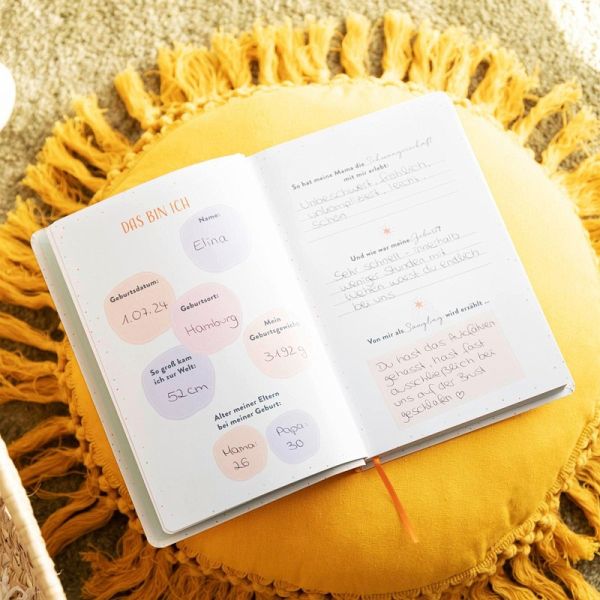 DAS BIN ICH
Name:
Elina
Geburtsdatum:
1.07.24
Geburtsort:
Hamburg
Mein
Geburtsgewicht:
3192g
So groß kam
ich zur Welt:
52 cm
Alter meiner Eltern
bei meiner Geburt:
Mama:
26
Papa:
30
So hat meine Mama die Schwangerschaft
mit mir erlebt:
Unbeschwert, fröhlich,
unkompliziert, leicht,
schön
Und wie war meine Geburt
Sehr schnell - innerhalb
weniger Stunden mit
Wehen warst du endlich
bei uns
Von mir als Säugling wird erzählt ...
Du hast das Autofahren
gehasst, hast fast
ausschließlich bei
uns auf der Brust
geschlafen ♡